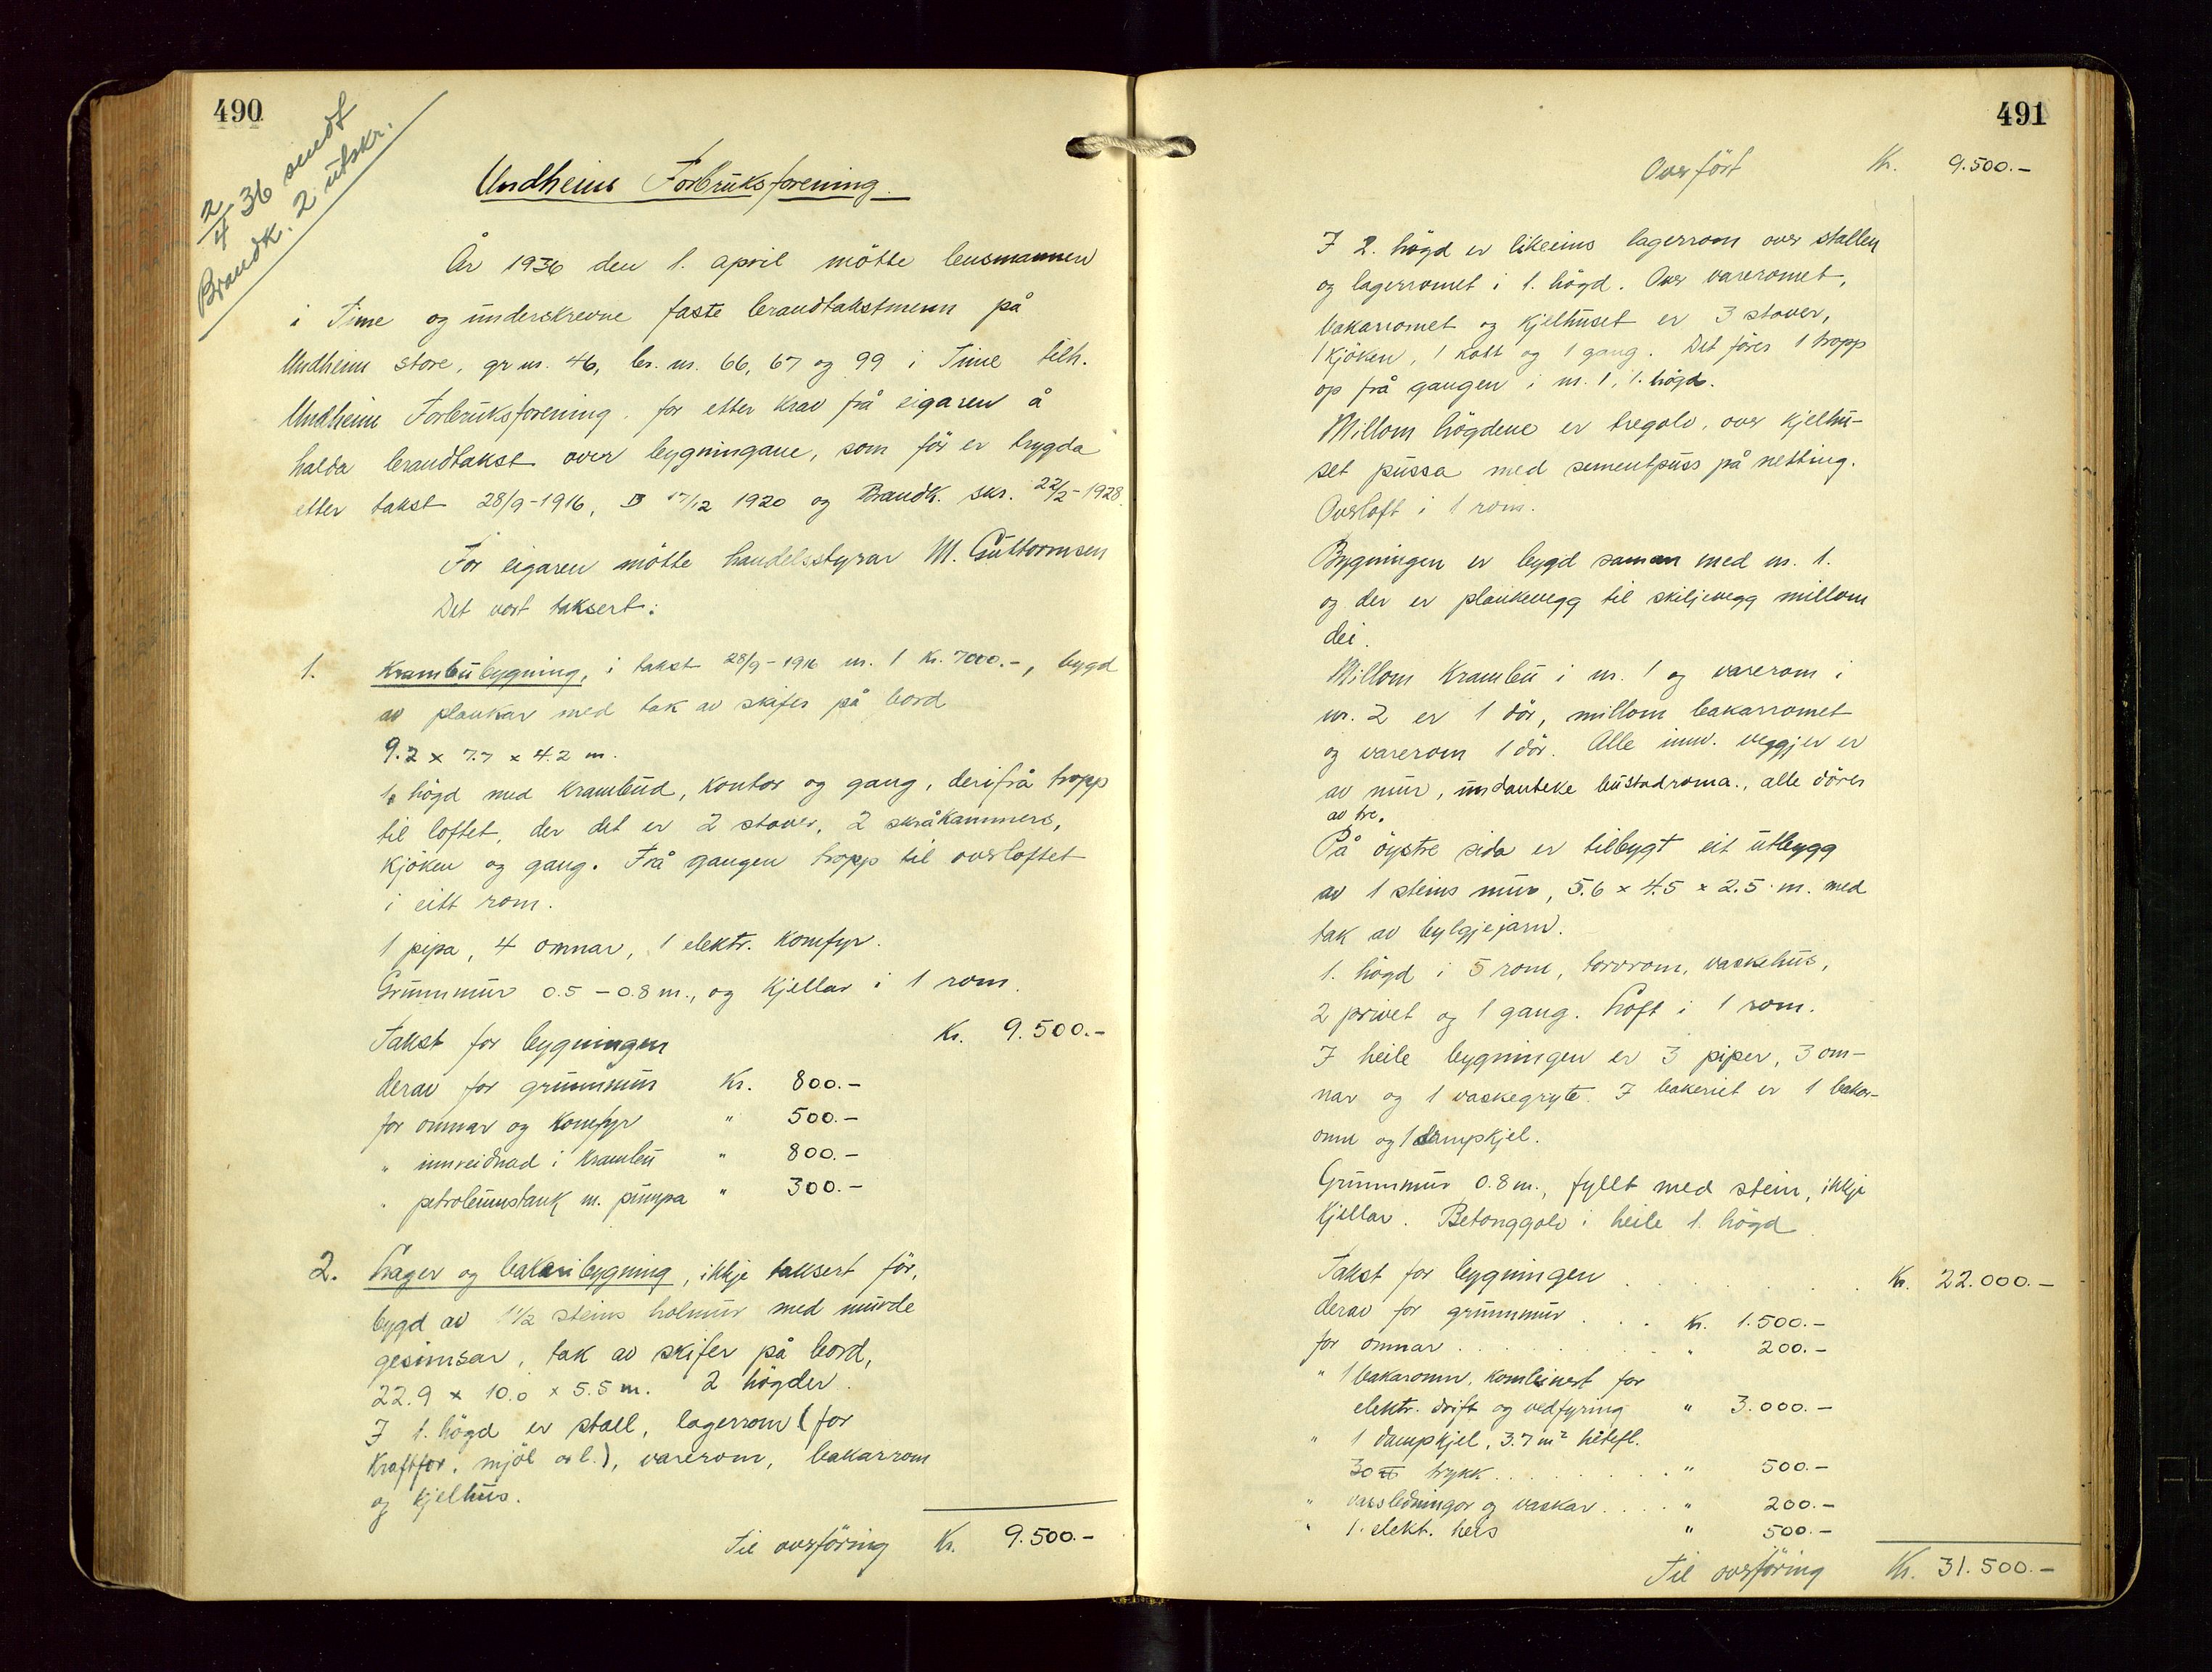 490
2/4 36 sendt
Brandk. 2 utskr.
Undheim Forbruksforening.
År 1936 den 1. april møtte lensmannen
i Time og underskrevne faste brandtakstmenn på
Undheim store, gr nr. 46, br. nr. 66, 67 og 99 i Time tilh.
Undheim Forbruksforening, for etter krav frå eigaren å
halda brandtakst over bygningane, som før er trygda
etter takst 28/9-1916, 17/12 1920 og Brandk. skr. 22/2-1928.
For eigaren møtte handelsstyrar M. Guttormsen
Det vart taksert:
1. Krambubygning, i takst 28/9-1916 nr. 1 Kr. 7000.-, bygd
av plankar med tak av skifer på bord
9.2 x 7.7 x 4.2 m.
1. högd med krambud, kontor og gang, derifrå tropp
til loftet, der det er 2 stover, 2 skråkammers,
kjöken og gang. Frå gangen tropp til overloftet
i eitt rom.
1 pipa, 4 omnar, 1 elektr. komfyr.
Grunnmur 0.5 - 0.8 m., og kjellar i 1 rom.
Takst for bygningen Kr. 9.500.-
derav for grunnmur Kr. 800.-
for omnar og komfyr " 500.-
" innreidnad i krambu " 800.-
" petroleumstank m. pumpa " 300.-
2. Lager og bakaribygning, ikkje taksert för,
bygd av 1 1/2 steins holmur med murde
gesimsar, tak av skifer på bord,
22.9 x 10.0 x 5.5 m. 2 högder.
I 1. högd er stall, lagerrom (for
kraftfor, mjöl o.l.), varerom, bakarrom
og kjelhus.
Til overföring Kr. 9.500.-
491
Overfört Kr. 9.500.-
I 2. högd er likeeins lagerrom over stallen
og lagerromet i 1. högd. Over vareromet,
bakarromet og kjelhuset er 3 stover,
1 kjöken, 1 kott og 1 gang. Det förer 1 tropp
op frå gangen i nr. 1, 1. högd.
Millom högdene er tregolv, over kjelhu-
set pussa med sementpuss på netting.
Overloft i 1 rom.
Bygningen er bygd saman med nr. 1.
og der er plankevegg til skiljevegg millom
dei.
Millom krambu i nr. 1 og varerom i
nr. 2 er 1 dör, millom bakarromet
og varerom 1 dör. Alle innv. veggjer er
av mur, undanteke bustadroma., alle dörer
av tre.
På öystre sida er tilbygt eit utbygg
av 1 steins mur, 5.6 x 4.5 x 2.5 m. med
tak av bylgjejarn.
1. högd i 5 rom, torvrom, vaskehus,
2 privet og 1 gang. Loft i 1 rom.
I heile bygningen er 3 piper, 3 om-
nar og 1 vaskegryte. I bakeriet er 1 bakar-
omn og 1 dampkjel.
Grunnmur 0.8 m., fyllt med stein, ikkje
kjellar. Betonggolv i heile 1. högd.
Takst for bygningen . . . . . Kr. 22.000.-
derav for grunnmur . . . Kr. 1.500.-
for omnar . . . . . . " 200.-
" 1 bakaromn, kombinert for
elektr. drift og vedfyring " 3.000.-
" 1 dampkjel, 3.7 m² hetefl.
30 trykk . . . . . . " 500.-
" vassledningar og vaskar . . . . " 200.-
" 1. elekt. heis " 500.-
Til overföring Kr. 31.500.-